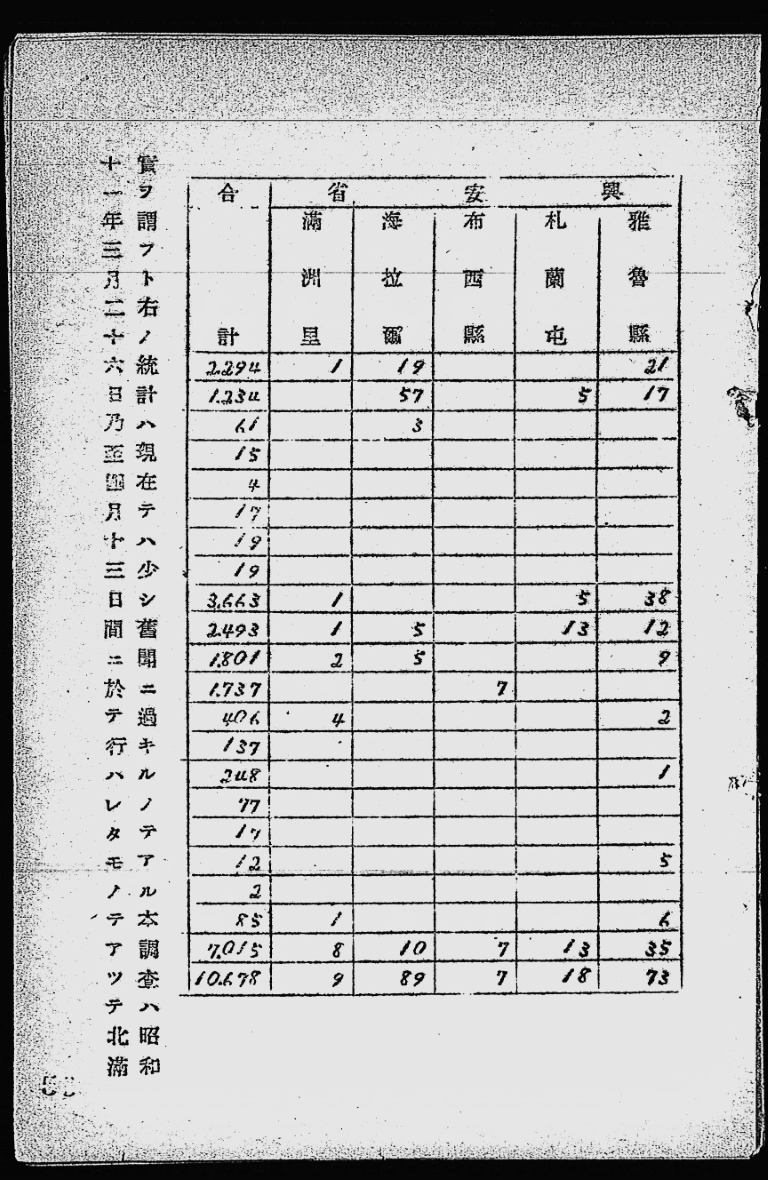 興安省
雅魯縣
札蘭屯
布西縣
海拉爾
滿洲里
合計
2.294 1 19 21
1.234 57 5 17
61 3
15
4
17
19
19
3.663 1 5 38
2.493 1 5 13 12
1.801 2 5 9
1.737 7
406 4 2
137
248 1
77
17
12 5
2
85 1 6
7.015 8 10 7 13 35
10.678 9 89 7 18 73
實ヲ謂フト右ノ統計ハ現在テハ少シ舊聞ニ過キルノテアル本調査ハ昭和
十一年三月二十六日乃至四月十三日間ニ於テ行ハレタモノテアツテ北滿